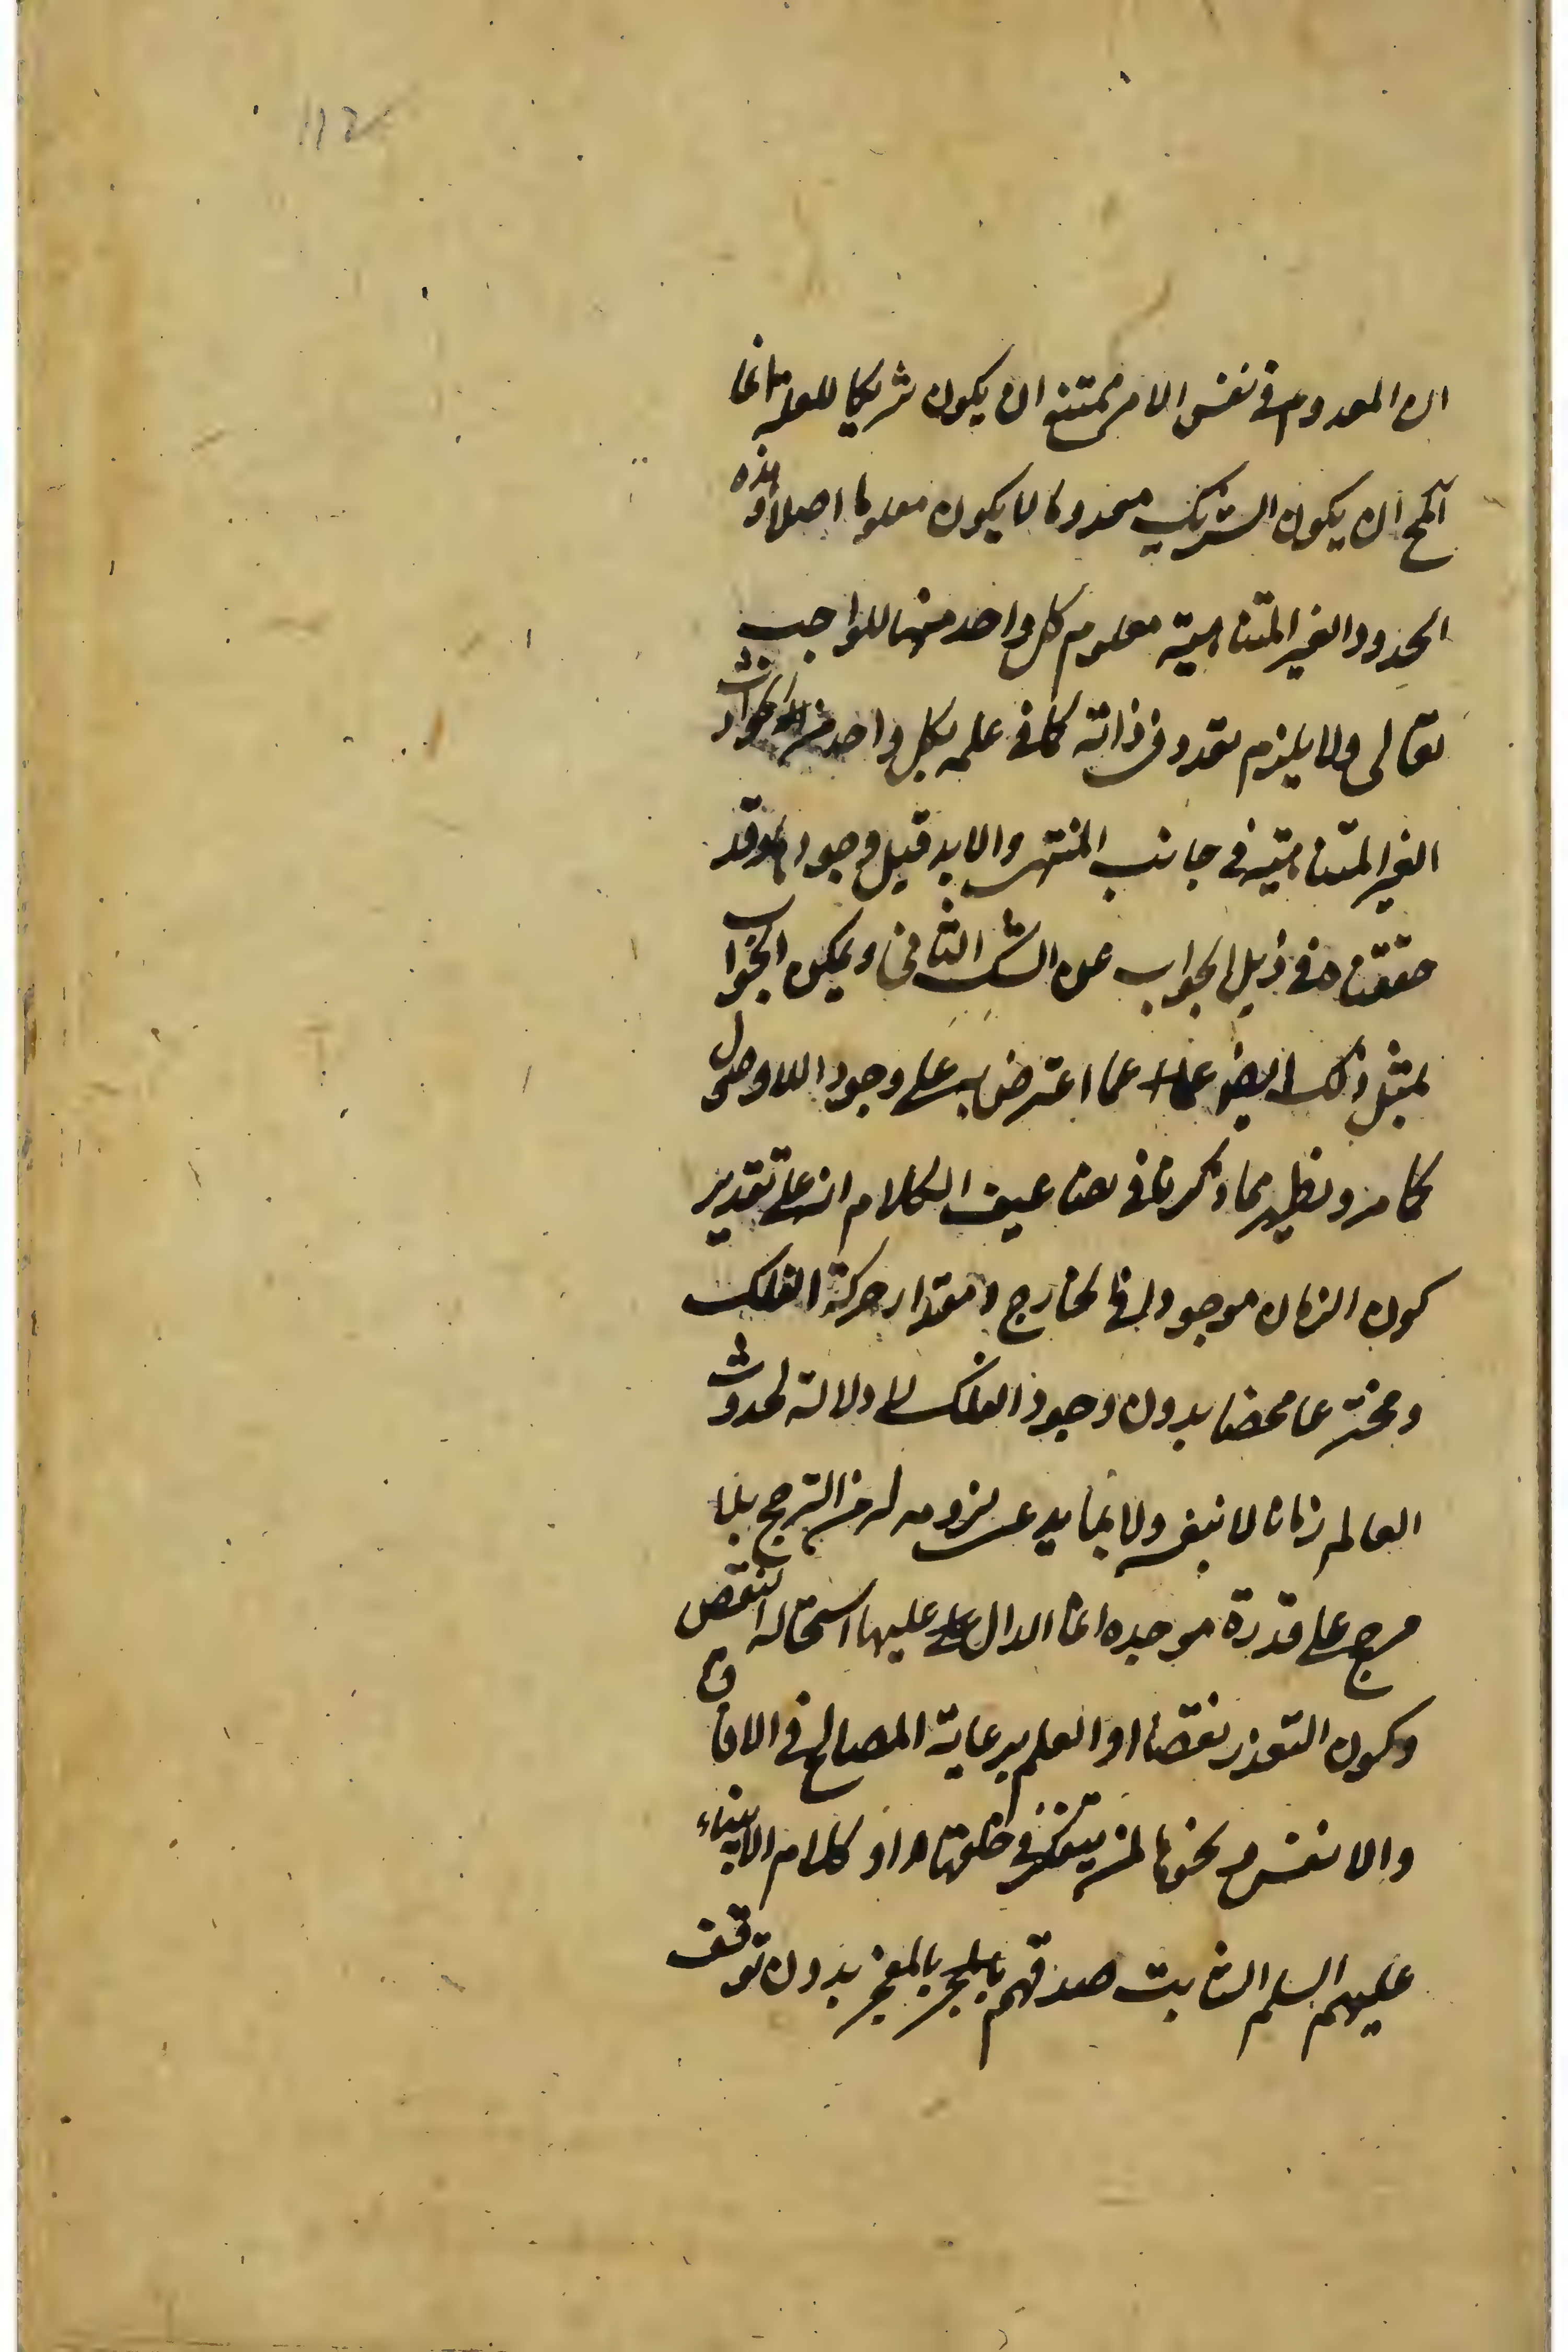 ان المعدوم في نفس الامر يمتنع ان يكون شريكا للعلة انما
المح ان يكون الشريك معدوما لا يكون معلوما اصلا وهذه
الحدود الغير المتناهية معلوم كل واحد منها للواجب
تعالى ولا يلزم تعدد في ذاته كما في علمه بكل واحد من الحوادث
الغير المتناهية في جانب المنتهى والابد قبل وجودها وقد
حققناه في ذيل الجواب عن الشك الثاني ويمكن الجواب
بمثل ذلك ايضا عما اعترض به على وجود اللاوصول
كما مر ويظهر مما ذكرنا في تضاعيف الكلام انه على تقدير
كون الزمان موجودا في الخارج ومقدار حركة الفلك
ومخترعا محضا بدون وجود الفلك لا دلالة لحدوث
العالم زمانا لا بنفسه ولا بما يدعى لزومه له من الترجيح بلا
مرجح على قدرة موجده انما الدال عليها استحالة النقص
وكون التعذر نقصا او العلم برعاية المصالح في الافاق
والانفس ونحوها لمن يتفكر في خلقتها او كلام الانبياء
عليهم السلم الثابت صدقهم بالمعجز بدون توقف